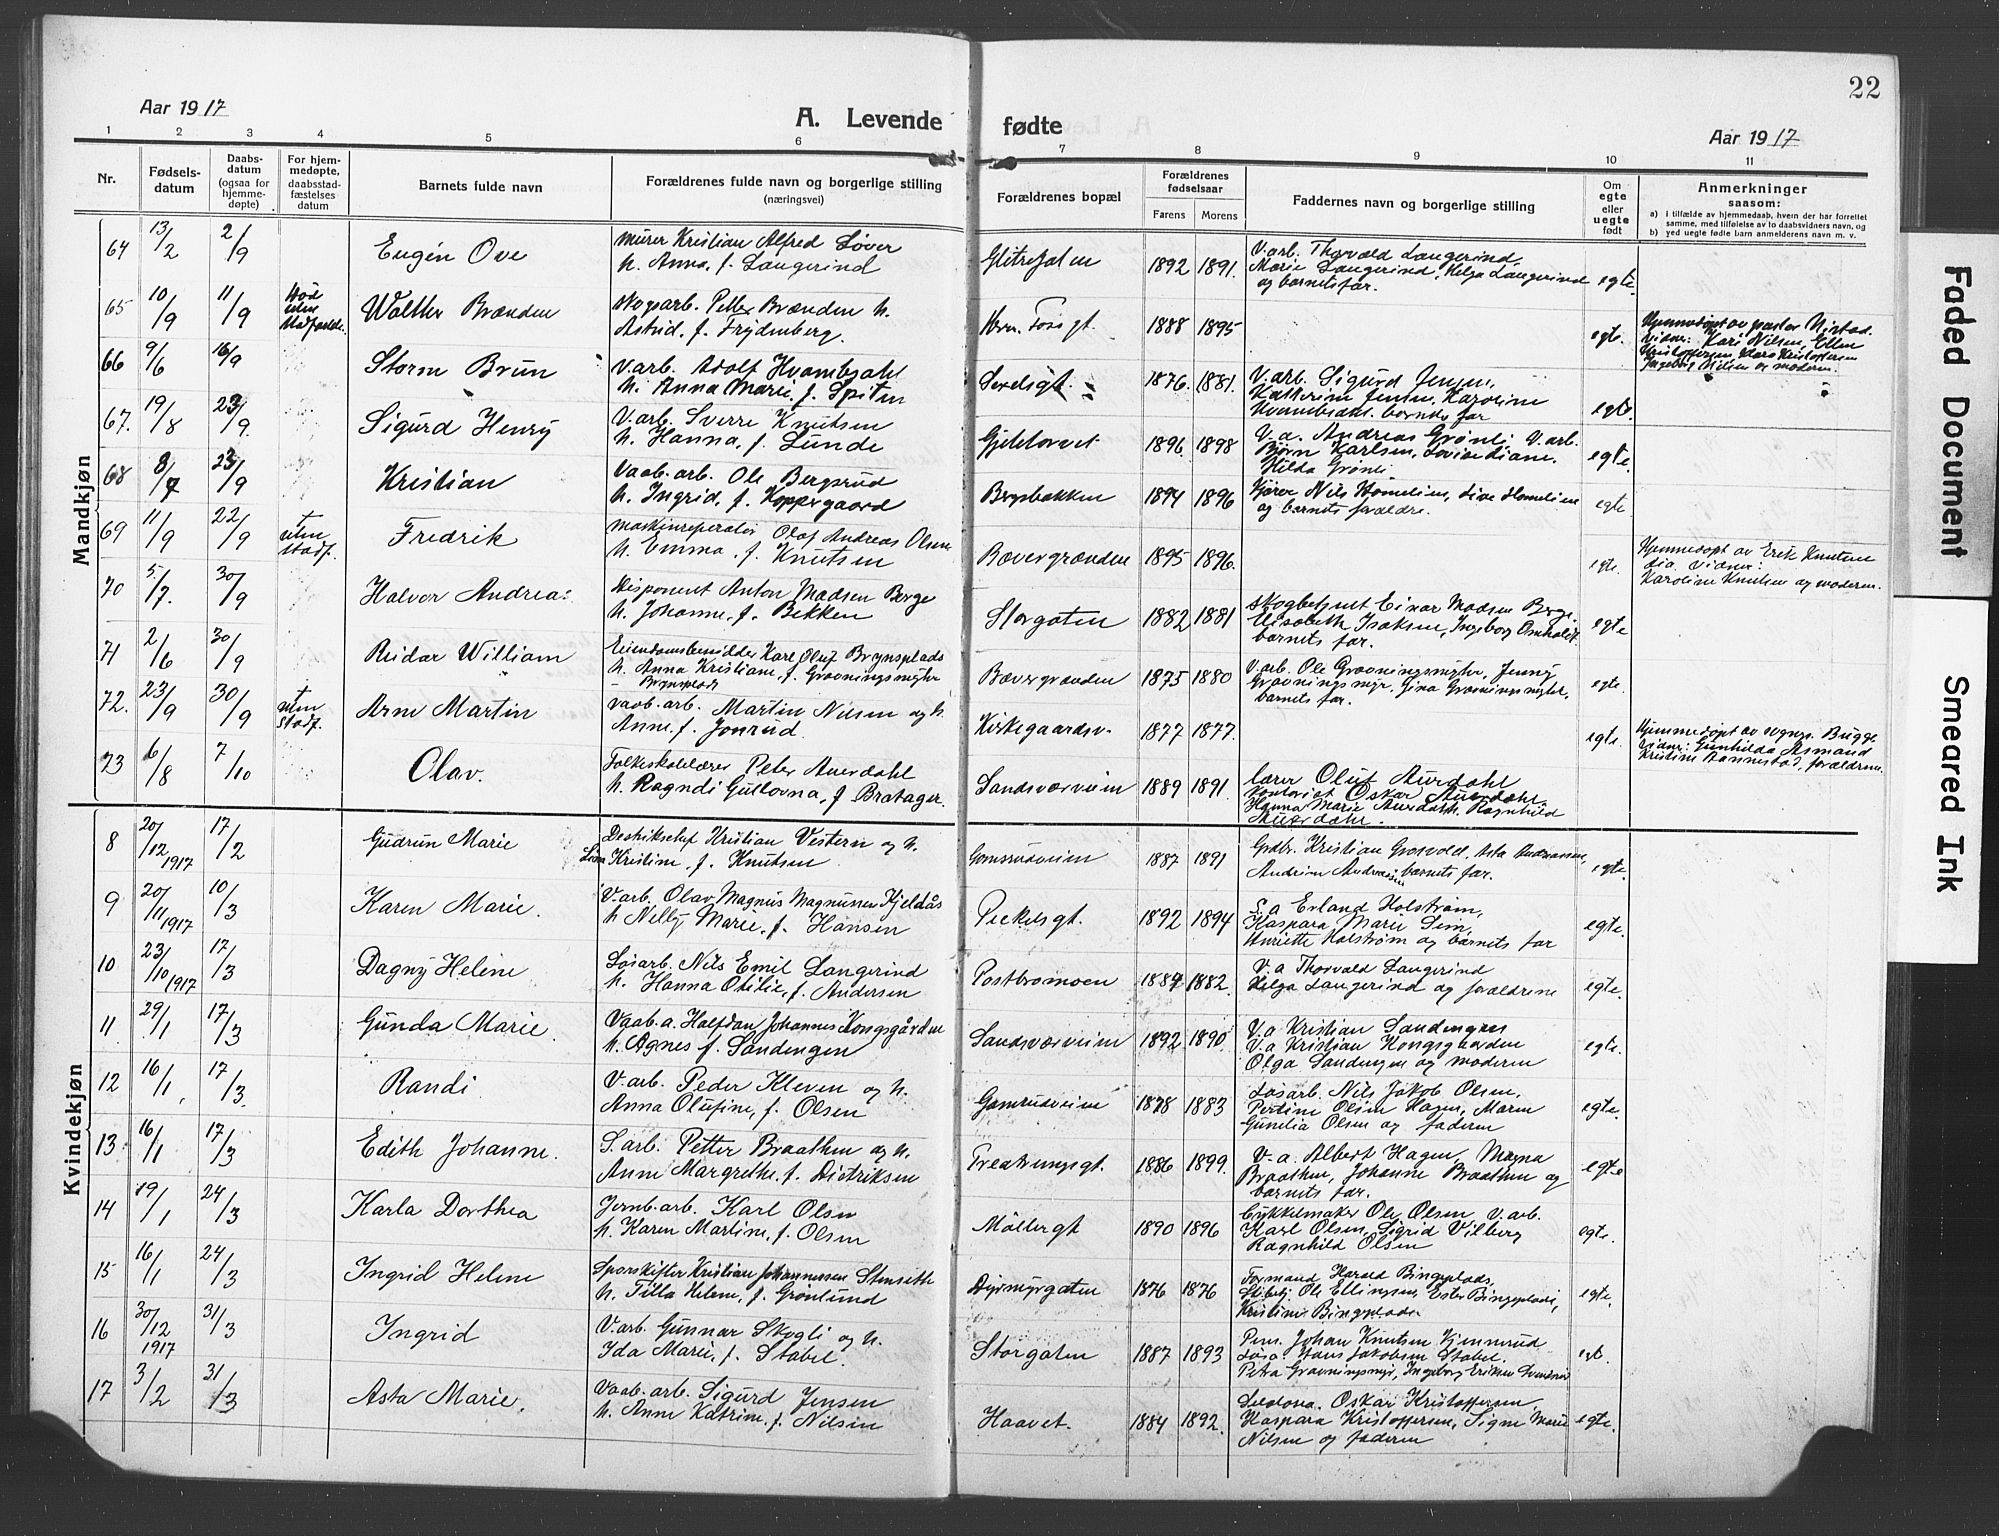 22
Aar 1917
A. Levende
fødte
Aar 1917
1 2 3 4 5 6 7 8 9 10 11
Nr.
Fødsels-
datum
Daabs-
datum
(ogsaa for
hjemme-
døpte)
For hjem-
medøpte,
daabsstad-
fæstelses
datum
Barnets fulde navn
Forældrenes fulde navn og borgerlige stilling
(næringsvei)
Forældrenes bopæl
Forældrenes
fødselsaar
Farens Morens
Faddernes navn og borgerlige stilling
Om
egte
eller
uegte
født
Anmerkninger
saasom:
a) i tilfælde av hjemmedaab, hvem der har forrettet
samme, med tilføielse av to daabsvidners navn, og
b) ved uegte fødte barn anmelderens navn m. v.
Mandkjøn
64 13/2 2/9 Eugén Ove
murer Kristian Alfred Løver
h. Anna, f. Langerind
Glitregaten 1892 1891
V.arb. Thorvald Langerind,
Marie Langerind, Helga Langerind
og barnets far.
egte.
65 10/9 11/9
Død
uten
stadfæstelse.
Walther Brænden
skogsarb. Petter Brænden h.
Astrid, f. Frydenberg.
Herm. Fossgt. 1888 1895
egte.
Hjemmedøpt av pastor
Vidner: Kari Nilsen, Ellen
Kristoffersen, Klara Kristoffersen
Ingeborg Nilsen og moderen.
66 9/6 16/9 Storm Brun
V.arb. Adolf Hvambsahl
h. Anna Marie, f. Spiten
1876. 1881.
V.arb. Sigurd Jensen,
Kathrine Jensen, Karoline
barnets far
egte.
67. 19/8 23/9. Sigurd Henry
V.arb. Sverre Knutsen
h. Hanna, f. Lunde
Gjeteltorvet 1896. 1898
V.a. Andreas Grønli, V.arb.
Bjørn Karlsen, Lovise Diane.
Hilda Grønli
egte.
68 8/7 23/9 Kristian
Vaab.arb. Ole Bergsrud
h. Ingrid, f. Koppergaard
Bergsbakken 1894 1896
Kjører Nils Homelien, Live Homelien
og barnets forældre.
egte.
69 11/9 22/9
uten
stadf.
Fredrik
maskinreperatør Olaf Andreas Olsen
h. Emma, f. Knutsen
Bævergrænden 1895 1896.
egte.
Hjemmedøpt av Erik Knutsen
dia. Vidner:
Karoline Knutsen og moderen.
70 5/7. 30/9 Halvor Andreas
Disponent Anton Madsen Berge
h. Johanne, f. Bekken
Storgaten 1882 1881
Skogbetjent Einar Madsen Berge.
Elisabeth Isaksen, Ingeborg Omholdt
barnets far.
egte
71 2/6 30/9 Reidar William
Eiendomsbesidder Karl Oluf Brynsplads
h. Anna Kristiane, f. Gravningsmyhr
Brynsplads
Bævergrænden 1875 1880
V.arb. Ole Gravningsmyhr, Jenny
Gravningsmyr, Gina Gravningsmyhr,
barnets far.
egte.
72. 23/9 30/9
uten
stadf.
Arne Martin
Vaab.arb. Martin Nilsen og h.
Anne, f. Jonrud.
Kirkegaardsv. 1877 1877.
egte.
Hjemmedøpt av sogngs. Bugge
Vidner: Gunhilda Asmand
Kristine Bannestad, forældrene.
73 6/8 7/10 Olav.
Folkeskolelærer Peter Auerdahl
h. Ragndi Gullovna, f. Bratager.
Sandsværveien 1889 1891.
lærer Oluf Aurdahl
Kontorist Oskar Auerdahl.
Hanna Marie Auerdahl, Ragnhild
Auerdahl.
Kvindekjøn
8 20/12 1917 17/2 Gudrun Marie
Kristian Vestern og h.
Kristine, f. Knutsen
Gomsrudveien 1887 1891
Grdbr. Kristian Grosvold, Asta Andreassen,
Andrine Andreassen, barnets far.
egte.
9 20/11 1917 10/3 Karen Marie.
V.arb. Olav Magnus Magnussen Kjeldås
h. Nelly Marie, f. Hansen
Peckelsgt. 1892 1894
S.a Erland Holstrøm,
Kaspara Marie Lien,
Henriette Holstrøm og barnets far
egte.
10 23/10 1917 17/3 Dagny Helene
Løsarb. Nils Emil Langerind
h. Hanna Otilie, f. Andersen
Postbromoen 1887 1882.
V.a Thorvald Langerind
Helga Langerind og forældrene
egte.
11 29/1 17/3 Gunda Marie.
Vaab.a. Halfdan Johannes Kongsgården
h. Agnes f. Sandengen
Sandsværveien 1892. 1890.
V.a Kristian Sandengen
V.a Kristian Kongsgaarden
Olga Sandengen og moderen
egte.
12 16/1, 17/3. Randi
V.arb. Peder Kleven og h.
Anna Olufine, f. Olsen
Gomsrudveien 1878 1883
Løsarb. Nils Jakob Olsen,
Pertine Olsen Hagen, Maren
Gunelia Olsen og faderen
egte.
13 16/1 17/3 Edith Johanne.
S.arb. Petter Braathen og h.
Anne Margrethe, f. Didriksen
1886 1899.
V.a. Albert Hagen, Magna
Braathen, Johanne Braathen og
barnets far.
egte
14 19/1 24/3 Karla Dorthea
Jernb.arb. Karl Olsen
h. Karen Martine, f. Olsen
Møllergt 1890 1896
Cykkelmaker Ole Olsen V.arb.
Karl Olsen, Sigrid Vilberg
Ragnhild Olsen
egte.
15 16/1 24/3 Ingrid Helene
Sporskifter Kristian Johannessen Stenseth
h. Tilla Helene, f. Grønlund
Dyrmyrgaten 1876 1876
Formand Harald Bingsplads,
Ole Ellingsen, Ester Bingsplads,
Kristine Bingsplads
egte.
16 30/12 1917 31/3 Ingrid
V.arb. Gunnar Skogli og h.
Ida Marie, f. Stabel.
Storgaten 1887 1893
Pens. Johan Knutsen Kjennerud
Løsa. Hans Jakobsen Stabel.
Petra Gravningsmyr, Ingeborg Eriksen
egt.
17 3/2 31/3 Asta Marie.
Vaab.arb. Sigurd Jensen
h. Anne Katrine, f. Nilsen
Haavet. 1884 1892.
Oskar Kristoffersen,
Kaspara Kristoffersen, Signe Marie
Nilsen og faderen
egte.
Faded Document
Smeared Ink